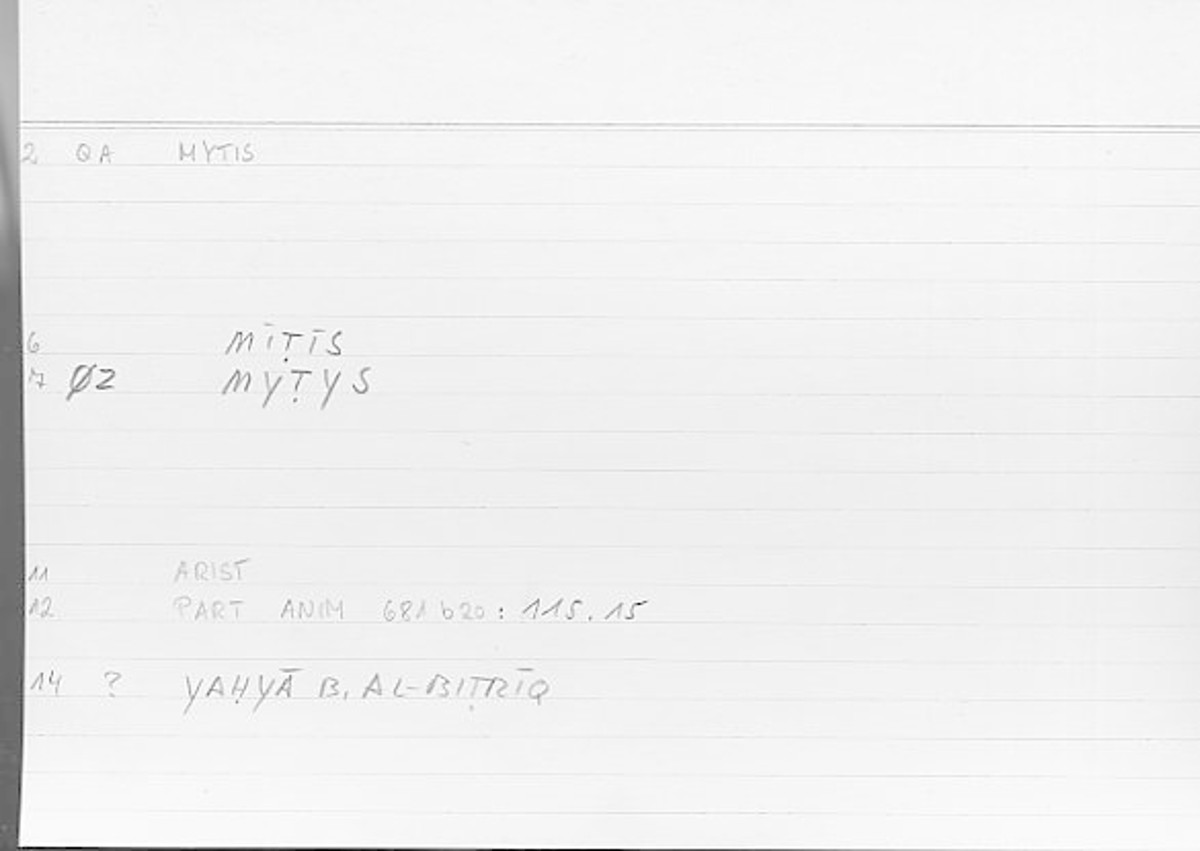 2 QA MYTIS
6 MĪṬĪS
7 Ø2 MYṬYS
11 ARIST
12 PART ANIM 681 b20 : 115.15
14 ? YAḤYĀ B. AL-BIṬRĪQ